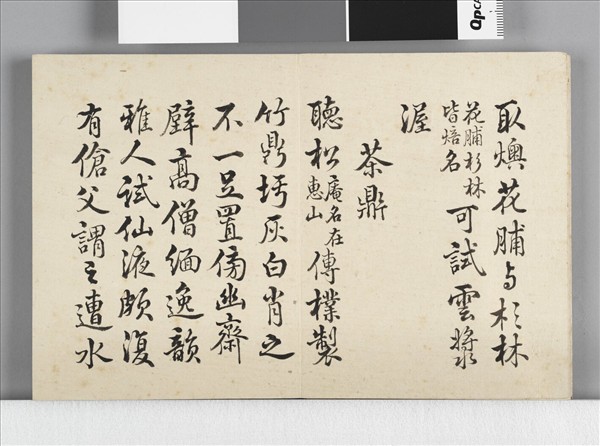 臥燠花脯与杉林
花脯杉林皆焙名
可試雲漿
渥
茶鼎
聽松庵名在惠山傳樸製
竹鼎圬灰白肖之
不一足置傍幽齋
壁高僧緬逸韻
雅人試仙液頗復
有傖父謂之遭水
QpCA